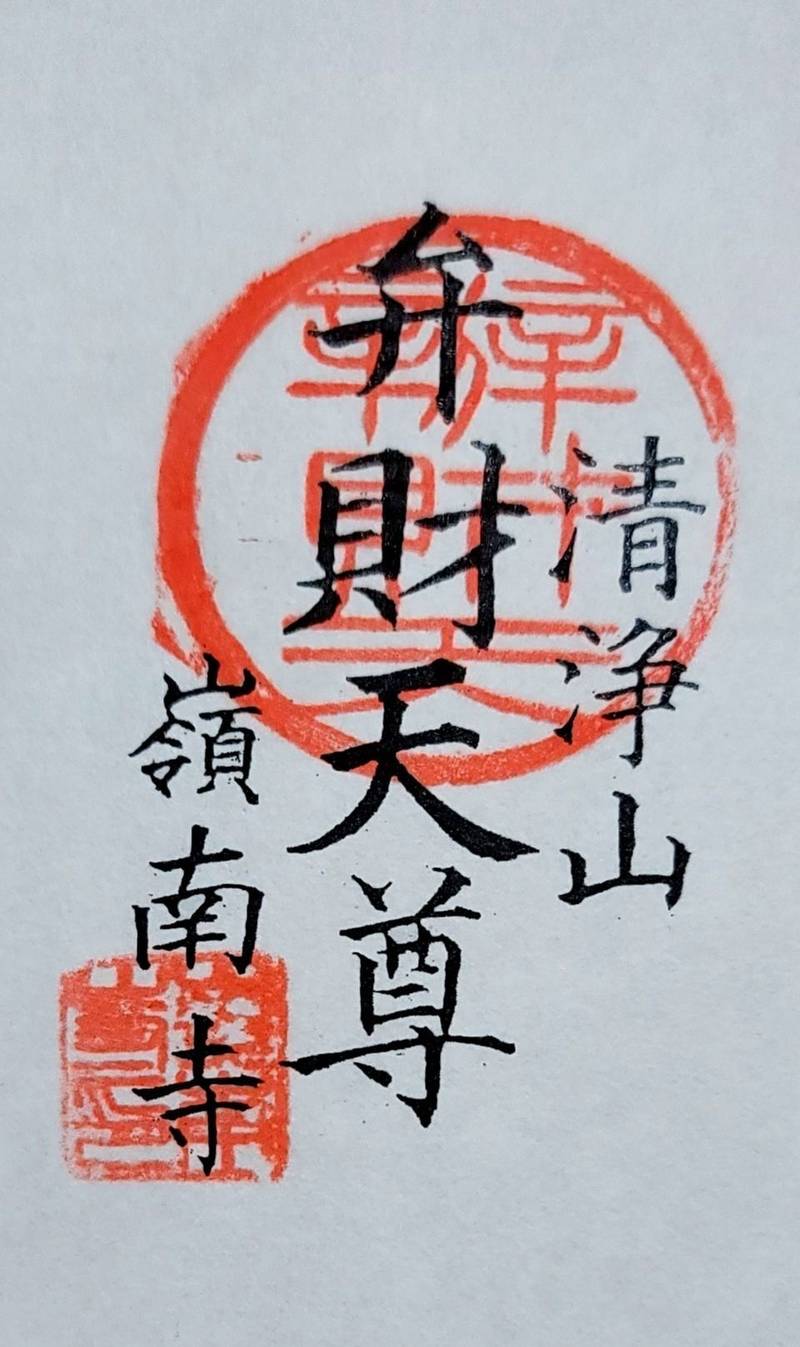 清浄山
弁財天尊
嶺南寺
辨財天